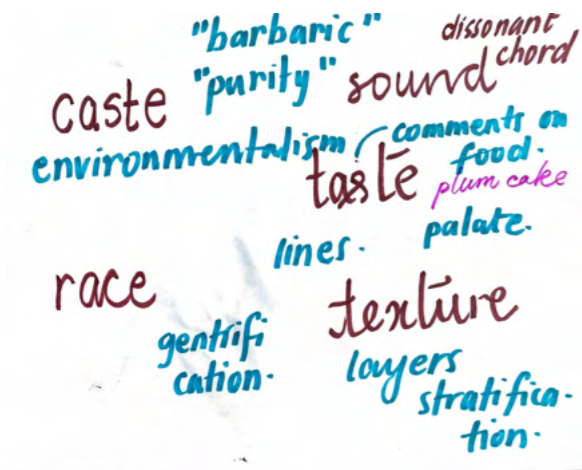 "barbaric"
"purity"
dissonant
chord
caste
sound
environmentalism
comments on
food.
taste
plum cake
palate.
lines.
race
texture
gentrifi
cation.
layers
stratifica-
tion.